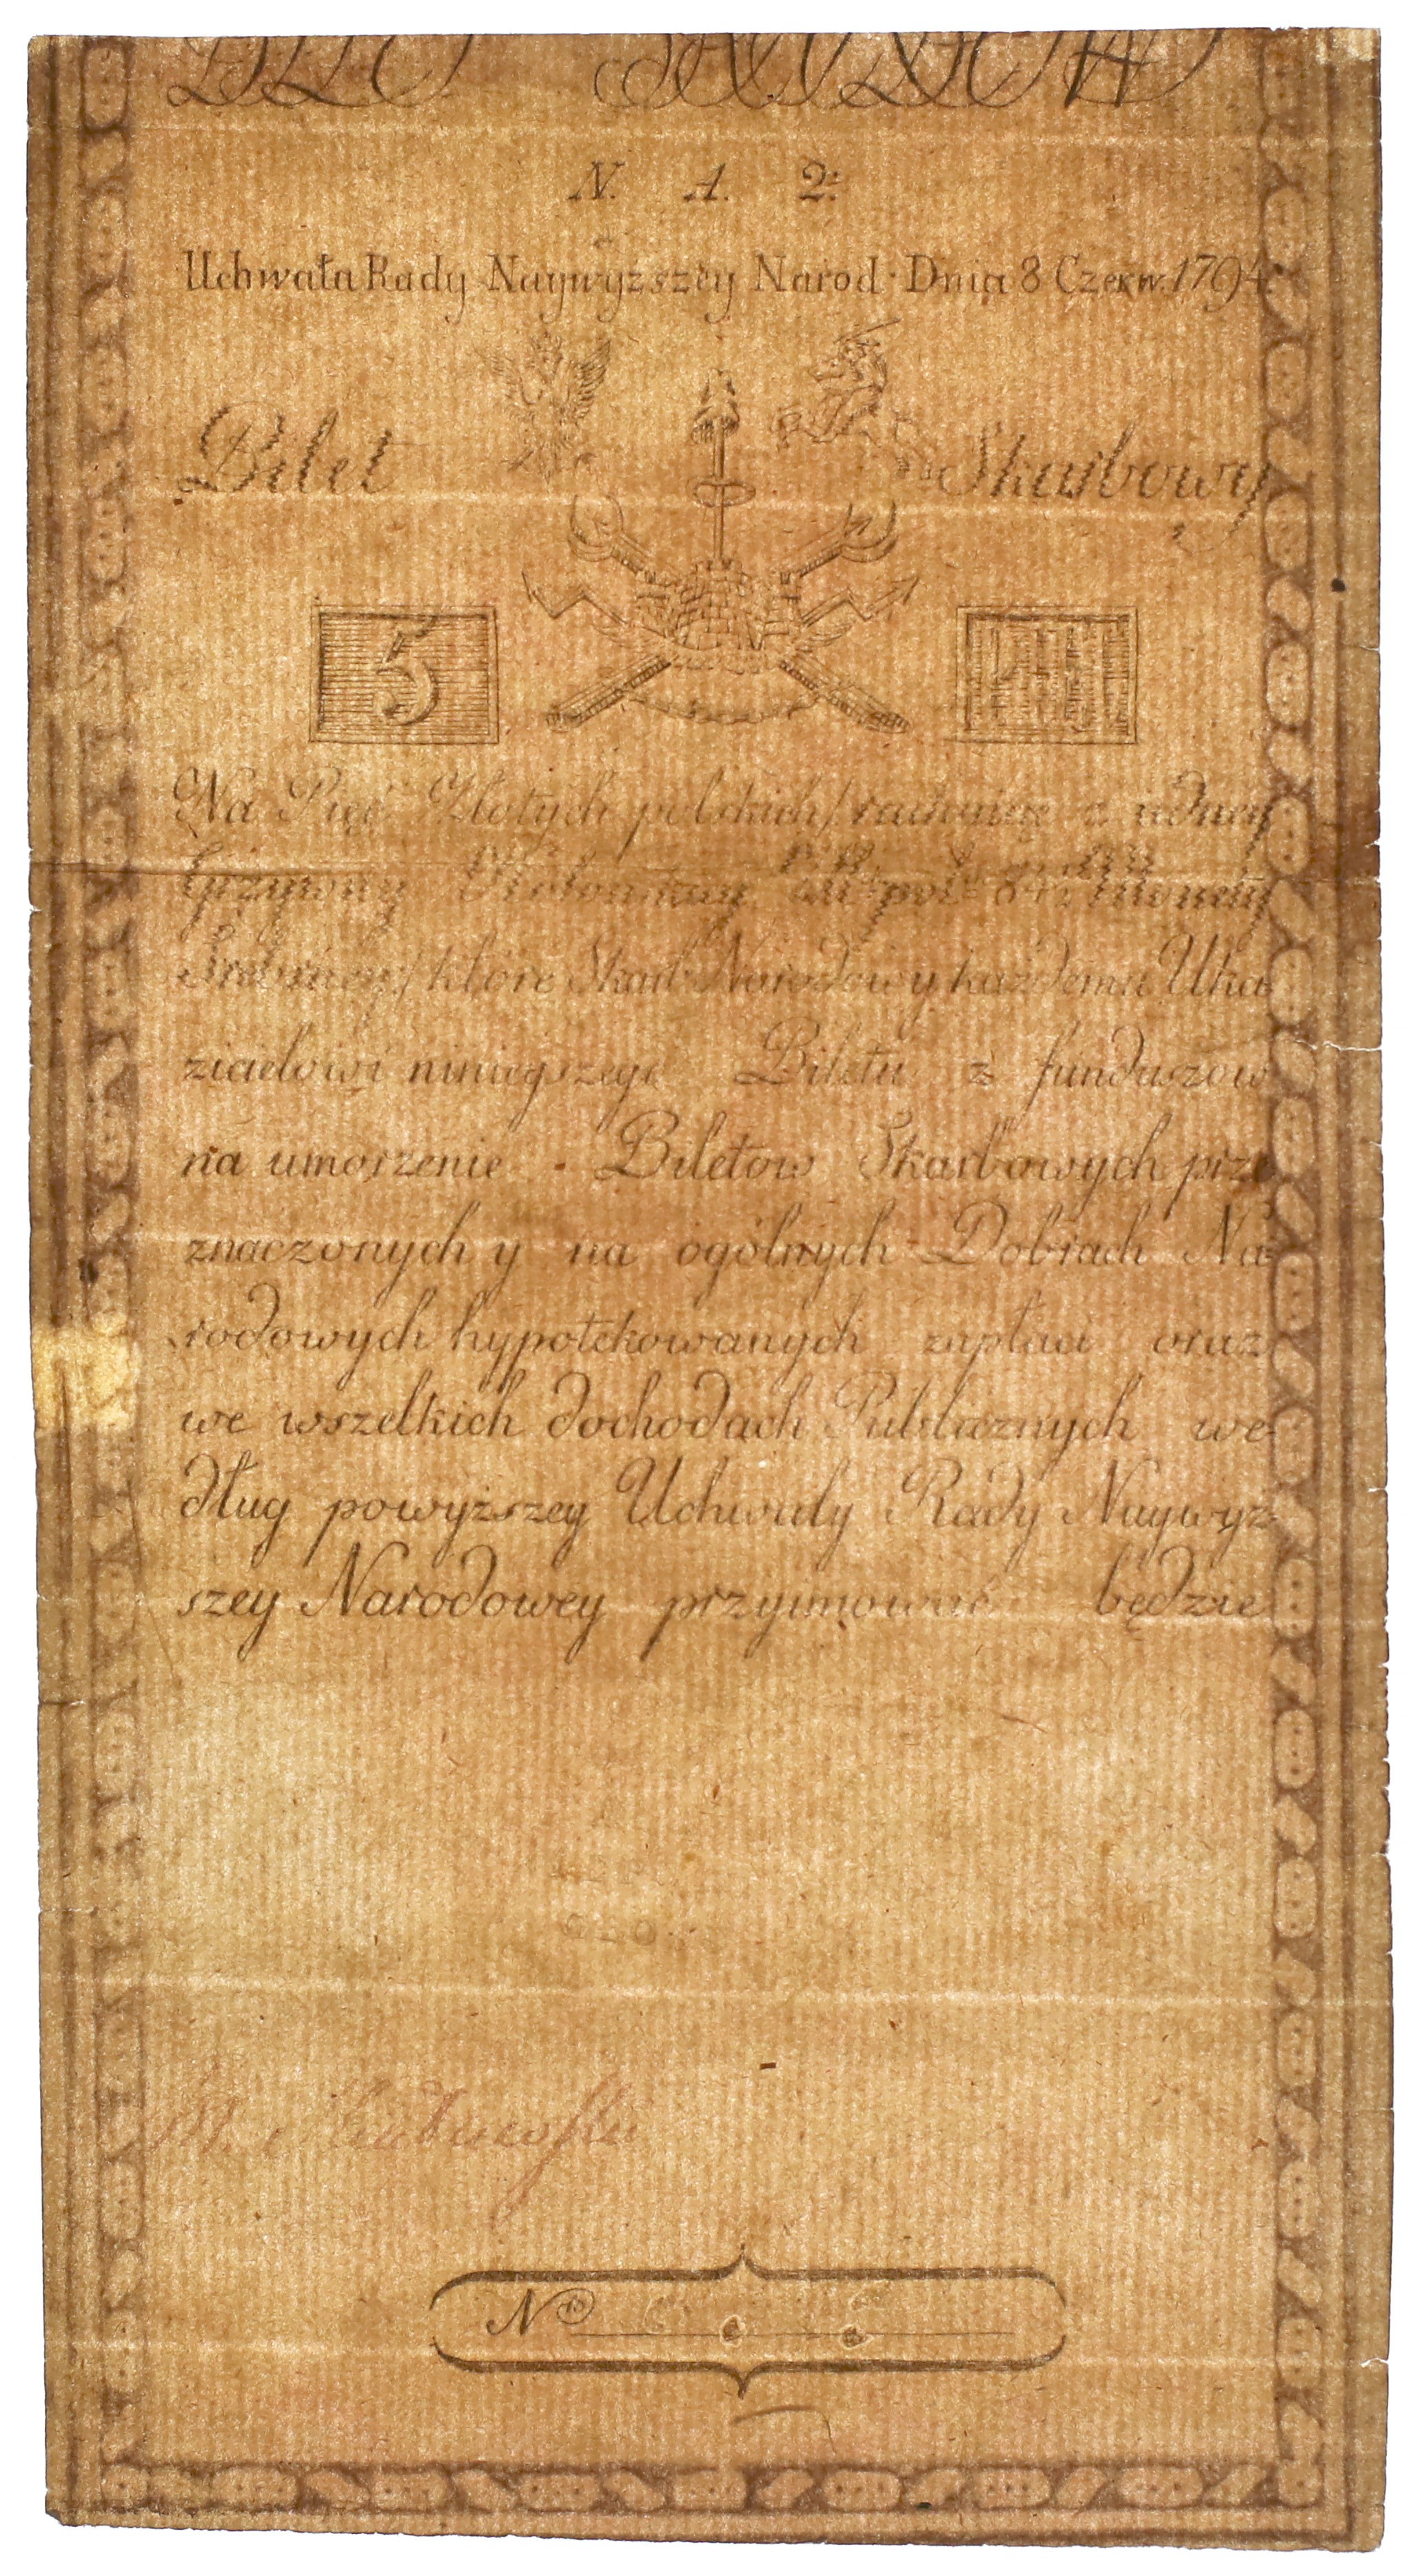 N. A. 2.
Uchwała Rady Naywyższey Narod. Dnia 8 Czerw. 1794.
Bilet Skarbowy
5
Na Pięć Złotych polskich / rachuiąc z
Grzywny Monety
Srebrney / które Skarb Narodowy każdemu Uka
zicielowi ninieyszego Biletu z funduszow
na umorzenie Biletow Skarbowych prze
znaczonych y na ogólnych Dobrach Na
rodowych hypotekowanych zapłaci oraz
we wszelkich dochodach Publicznych we
dług powyższey Uchwały Rady Naywyż
szey Narodowey przyimować będzie
No